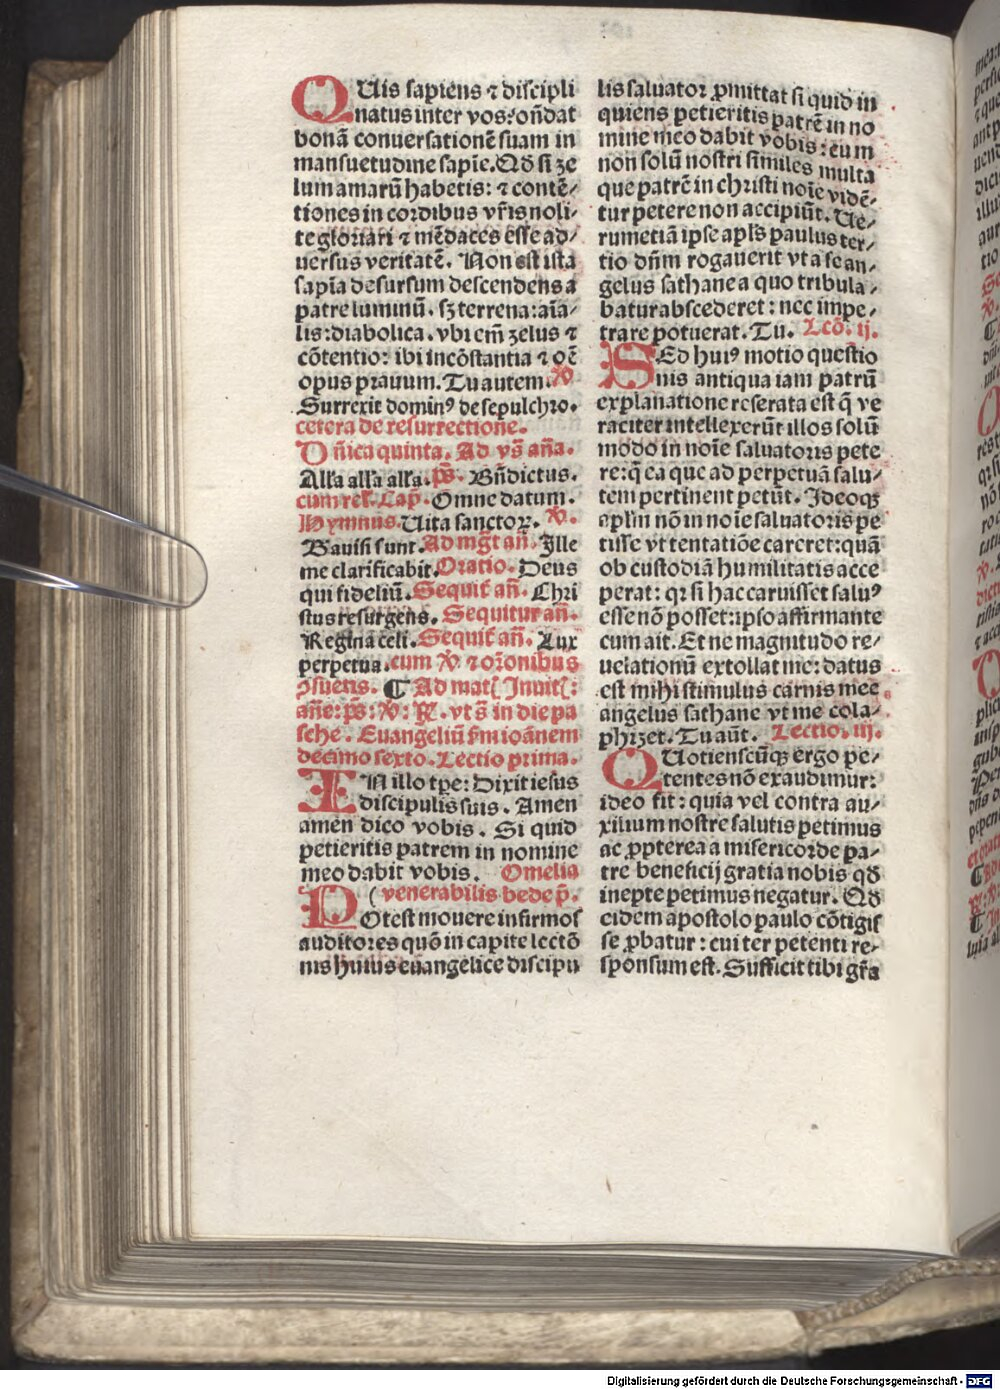 QUis sapiens ⁊ discipli
natus inter vos: on̄dat
bonā conuersationē suam in
mansuetudine sapīe. Qđ si ze
lum amarū habetis: ⁊ contē⸗
tiones in cordibus vr̄is noli⸗
te gloriari ⁊ mēdaces esse ad⸗
uersus veritatē. Non est ista
sapīa desursum descendens a
patre luminū. sꝫ terrena: aīa⸗
lis: diabolica. vbi em̄ zelus ⁊
cōtentio: ibi incōstantia ⁊ oē
opus prauum. Tu autem. ℣
Surrexit dominꝰ de sepulchro.
cetera de resurrectione.
Dn̄ica quinta. Ad vs̄ aña.
Alła alła alła. ps̄. Bn̄dictus.
cum rel̄. Cap̄. Omne datum.
Hymnus. Uita sanctoꝝ. ℣.
Gauisi sunt. Ad mḡt an̄. Ille
me clarificabit. Oratio. Deus
qui fideliū. Sequit̄ an̄. Chri
stus resurgens. Sequitur an̄.
Regina celi. Sequit̄ an̄. Lux
perpetua. cum ℣ ⁊ or̄onibus
ꝯsuetis. ¶ Ad mat̄ Inuit̄:
añe: ps̄: ℣: ℟. vt s̄ in die pa
sche. Euangeliū s̄m ioānem
decimo sexto. Lectio prima.
IN illo tp̄e: Dixit iesus
discipulis suis. Amen
amen dico vobis. Si quid
petieritis patrem in nomine
meo dabit vobis. Omelia
(venerabilis bede p̄.
POtest mouere infirmos
auditores quō in capite lectō
nis huius euangelice discipu
lis saluator ꝓmittat si quid in
quiens petieritis patrē in no
mine meo dabit vobis: eum
non solū nostri similes multa
que patrē in christi noīe vidē⸗
tur petere non accipiūt. Ue⸗
rumetiā ipse apl̄s paulus ter⸗
tio dn̄m rogauerit vt a se an⸗
gelus sathane a quo tribula⸗
batur abscederet: nec impe⸗
trare potuerat. Tu. Lcō. ij.
SEd huiꝰ motio questio
nis antiqua iam patrū
explanatione reserata est q̄ ve
raciter intellexerūt illos solū
modo in noīe saluatoris pete
re: q̄ ea que ad perpetuā salu⸗
tem pertinent petūt. Ideoqꝫ
apl̄m nō in noīe saluatoris pe
tisse vt tentatiōe careret: quā
ob custodiā humilitatis acce
perat: qꝛ si hac caruisset saluꝰ
esse nō posset: ipso affirmante
cum ait. Et ne magnitudo re⸗
uelationū extollat me: datus
est mihi stimulus carnis mee
angelus sathane vt me cola⸗
phizet. Tu aūt. Lectio. iij.
QUotienscūqꝫ ergo pe⸗
tentes nō exaudimur:
ideo fit: quia vel contra au⸗
xilium nostre salutis petimus
ac ꝓpterea a misericorde pa⸗
tre beneficij gratia nobis qđ
inepte petimus negatur. Qđ
eidem apostolo paulo cōtigis
se ꝓbatur: cui ter petenti re⸗
sponsum est. Sufficit tibi gr̄a
Digitalisierung gefördert durch die Deutsche Forschungsgemeinschaft - DFG